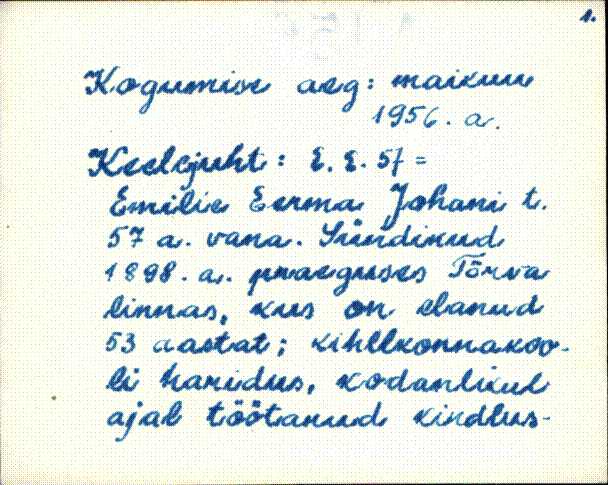 1.
Kogumise aeg: maikuu
1956. a.
Keelejuht: E. E. 57 =
Emilie Eerma Johani t.
57 a. vana. Sündinud
1898. a. praeguses Tõrva
linnas, kus on elanud
53 aastat; kihelkonnakoo-
li haridus, kodanlikul
ajal töötanud kindlus-